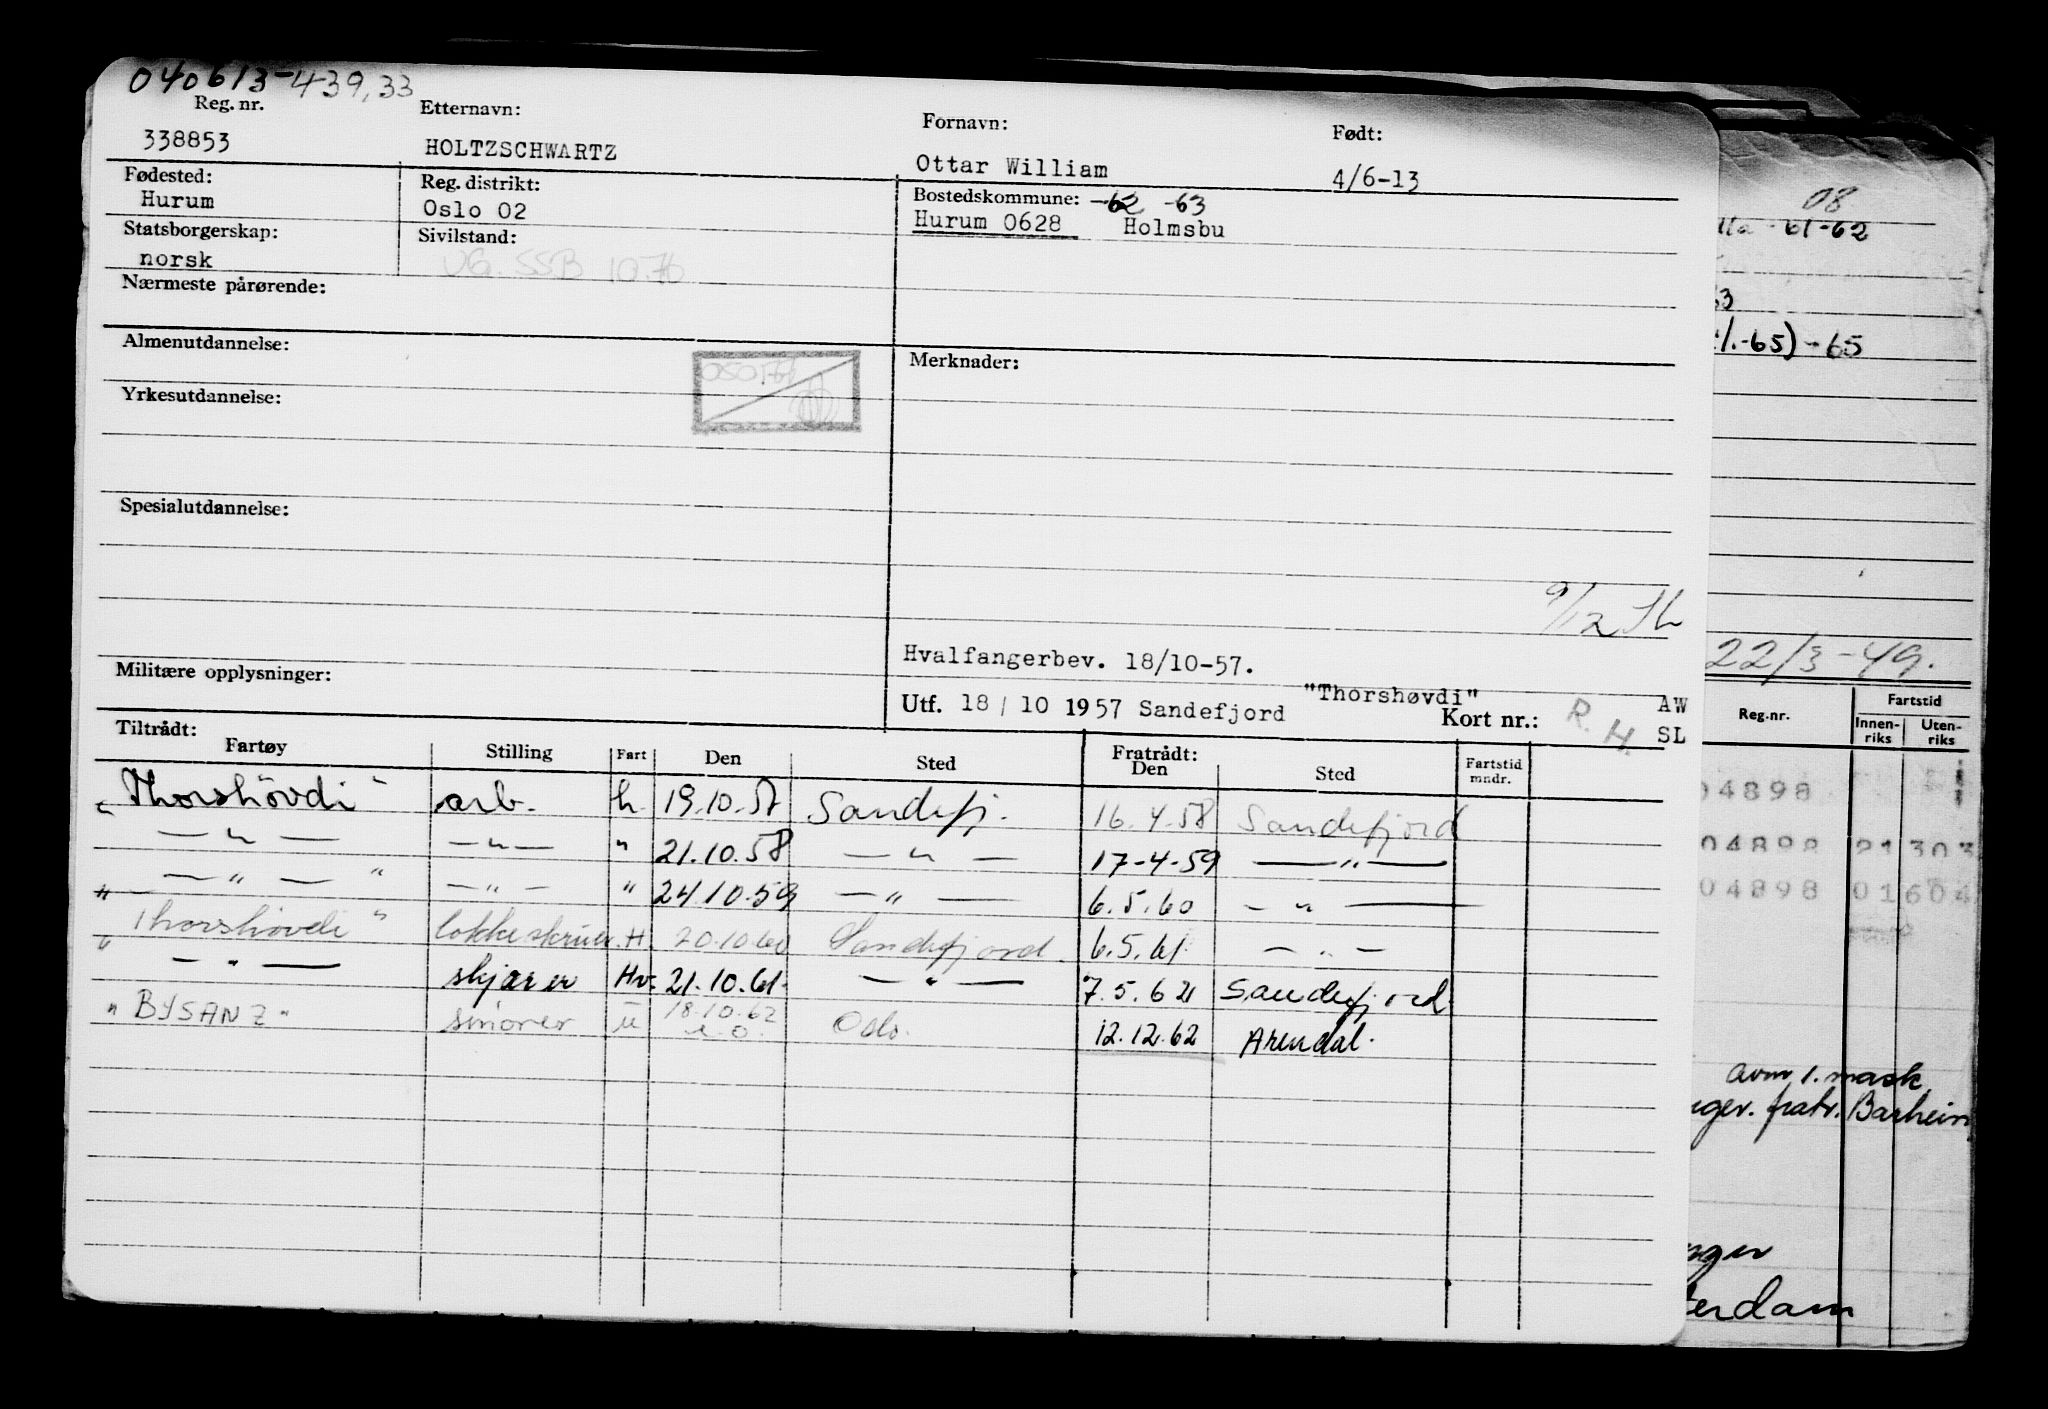 040613-439,33
Reg. nr. Etternavn: Fornavn: Født:
338853 HOLTZSCHWARTZ Ottar William 4/6-13
Fødested: Reg. distrikt: Bostedskommune: -62 -63
Hurum Oslo 02 Hurum 0628 Holmsbu
Statsborgerskap: Sivilstand:
norsk UG. SSB 10.76
Nærmeste pårørende:
Almenutdannelse: Merknader:
Yrkesutdannelse:
Spesialutdannelse:
9/12
Hvalfangerbev. 18/10-57.
Militære opplysninger: "Thorshøvdi"
Utf. 18/10 1957 Sandefjord Kort nr.: R.H. AW
SL
Tiltrådt: Fratrådt:
Fartøy Stilling Fart Den Sted Den Sted Fartstid mndr.
"Thorshövdi" arb. h. 19.10.57 Sandefj. 16.4.58 Sandefjord
— " — — " — " 21.10.58 — " — 17-4-59 — " —
" — " — " — " — " 24.10.59 — " — 6.5.60 — " —
" Thorshövdi " lokkeskruer H. 20.10.60 Sandefjord. 6.5.61 — " —
" — " — skjærer Hv. 21.10.61. — " — 7.5.62 Sandefjord
18.10.62
" BYSANZ " smører u Oslo. 12.12.62 Arendal.
08
-61-62
63
-65) -65
22/3-49.
Reg.nr. Fartstid
Innenriks Utenriks
04898
04898 21 303
04898 01 604
avm 1. mask
fratr. Barheim